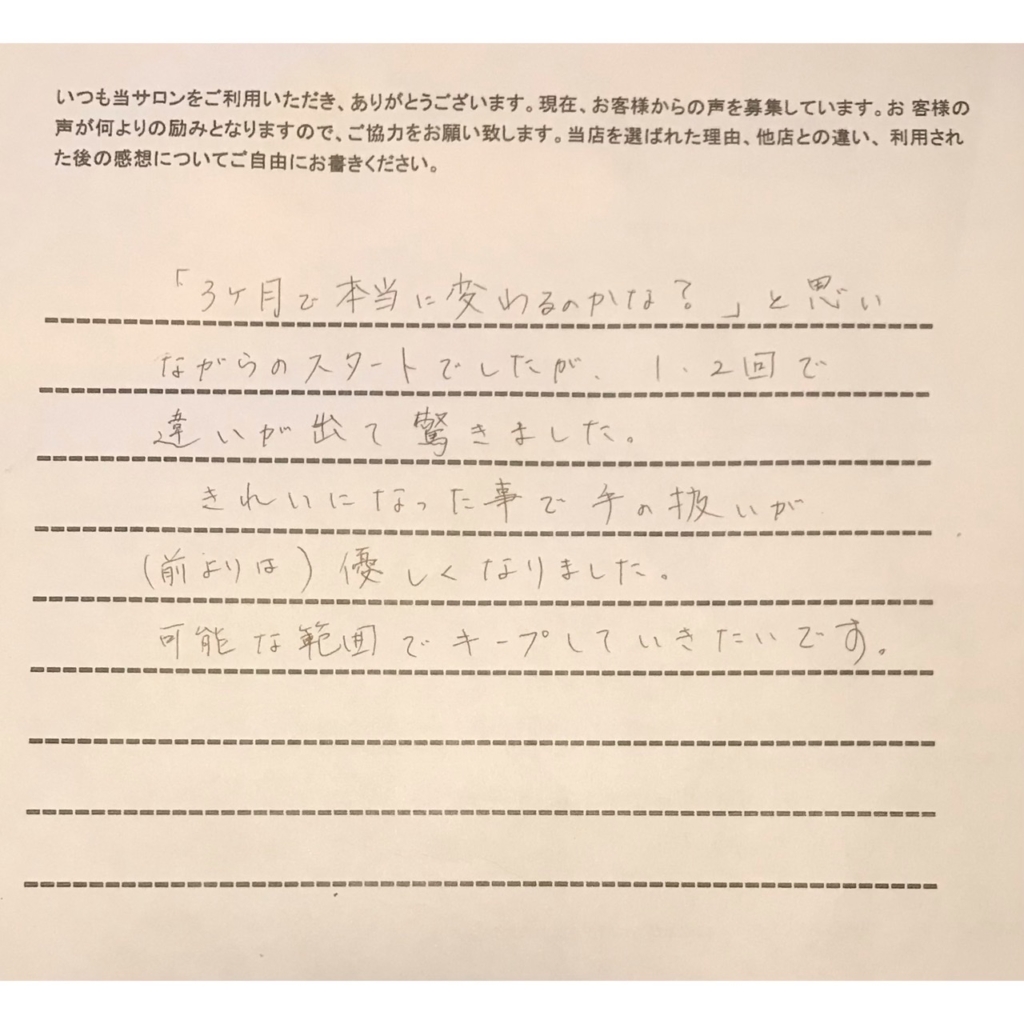 いつも当サロンをご利用いただき、ありがとうございます。現在、お客様からの声を募集しています。お 客様の
声が何よりの励みとなりますので、ご協力をお願い致します。当店を選ばれた理由、他店との違い、利用され
た後の感想についてご自由にお書きください。
「3ヶ月で本当に変わるのかな?」と思い
ながらのスタートでしたが、1、2回で
違いが出て驚きました。
きれいになった事で手の扱いが
(前よりは)優しくなりました。
可能な範囲でキープしていきたいです。